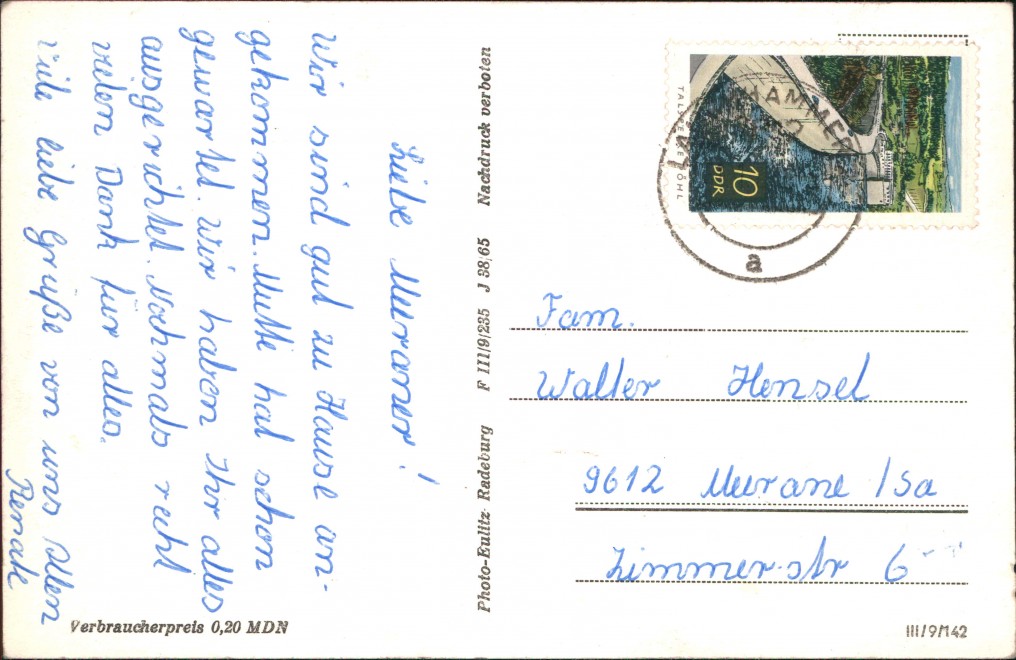 Liebe Meraner!
Wir sind gut zu Hause an-
gekommen. Mutte hat schon
gewartet. Wir haben Ihr alles
ausgerichtet. Nochmals recht
vielen Dank für alles.
Viele liebe Grüße von uns Allen
Renate
Verbraucherpreis 0,20 MDN
Photo-Eulitz Radeburg F III/9/235 J 38/65 Nachdruck verboten
TALSPERRE PÖHL
10
DDR
HAMMER
a
Fam.
Walter Hensel
9612 Meerane /Sa
Zimmer-str 6
III/9/142